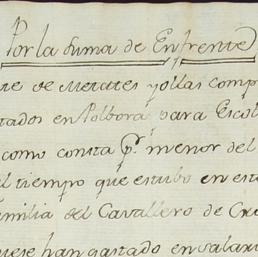 Por la suma de Enfrente
re de Metates y ollas comp
tados en Polbora para Escol
como consta pr. menor del
el tiempo que estubo en est
amilia del Cavallero de Cro
uese han gastado en salari